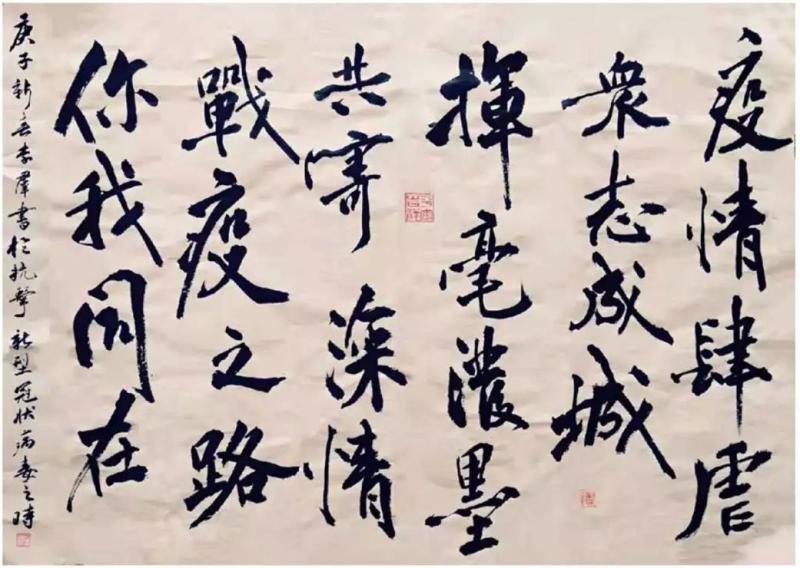 疫情肆虐
衆志成城
揮毫濃墨
共寄深情
戰疫之路
你我同在
庚子新春李羣書於抗擊新型冠狀病毒之時